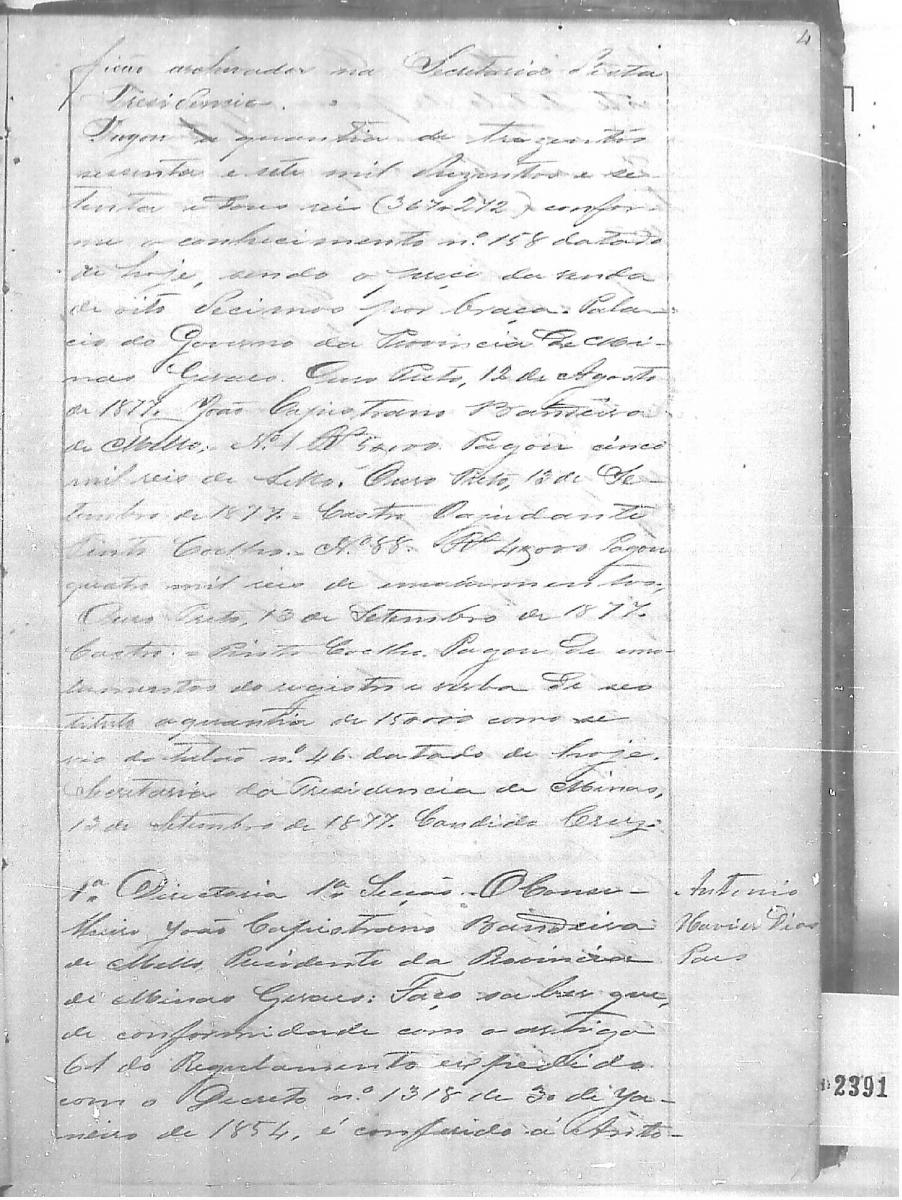 4
ficão archivados na Secretaria d'esta
Presidencia.
Pagou a quantia de trezentos
sessenta e sete mil duzentos e se-
tenta e dous reis (367$272) confor-
me o conhecimento nº 158 datado
de hoje, sendo o preço da venda
de oito decimos por braça. Pala-
cio do Governo da Provincia de Mi-
nas Geraes. Ouro Preto, 12 de Agosto
de 1877. João Capistrano Bandeira
de Mello. Nº 1 Rs 5$000. Pagou cinco
mil reis de sello. Ouro Preto, 13 de Se-
tembro de 1877. - Castro
Pinto Coelho. - Nº 88. Rs 4$000 Pagou
quatro mil reis de emolumentos,
Ouro Preto, 13 de Setembro de 1877.
Castro. - Pinto Coelho. Pagou de emo-
lumentos do registro e verba de seo
titulo a quantia de 15$000 como se
vio do talão nº 46 datado de hoje.
Secretaria da Presidencia de Minas,
12 de Setembro de 1877. Candido Cruz.
1ª Directoria 1ª Secção. - O Conse-
lheiro João Capistrano Bandeira
de Mello Presidente da Provincia
de Minas Geraes: Faço saber que,
de conformidade com o artigo
61 do Regulamento expedido
com o Decreto nº 1318 de 30 de Ja-
neiro de 1854, é conferido á Anto-
Antonio
Xavier Dias
Paes
2391